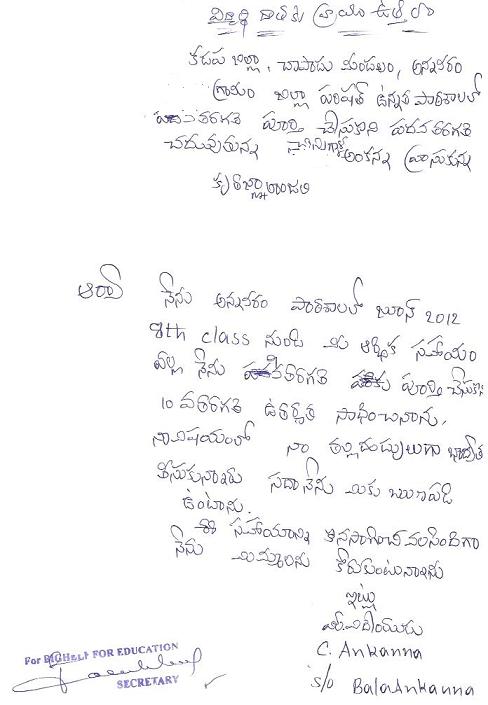 విద్యార్థి దాతకు వ్రాయు ఉత్తరం
కడప జిల్లా, చాపాడు మండలం, అన్నవరం
గ్రామం జిల్లా పరిషత్ ఉన్నత పాఠశాలలో
తరగతి పూర్తి చేసుకొని పదవ తరగతి
చదువుతున్న అంకన్న వ్రాసుకున్న
కృతజ్ఞతాంజలి
ఆర్యా నేను అన్నవరం పాఠశాలలో జూన్ 2012
8th class నుండి మీ ఆర్థిక సహాయం
వల్ల నేను తరగతి పూర్తి చేసుకొని
10 వ తరగతి ఉత్తీర్ణత సాధించినాను.
నా విషయంలో నా తల్లిదండ్రులుగా బాధ్యత
తీసుకున్నారు సదా నేను మీకు ఋణపడి
ఉంటాను.
ఈ సహాయాన్ని కొనసాగించ వలసిందిగా
నేను మిమ్మలను కోరుకుంటున్నాను
ఇట్లు
మీ విధేయుడు
C. Ankanna
S/o BalaAnkanna
For BIGHELP FOR EDUCATION
SECRETARY